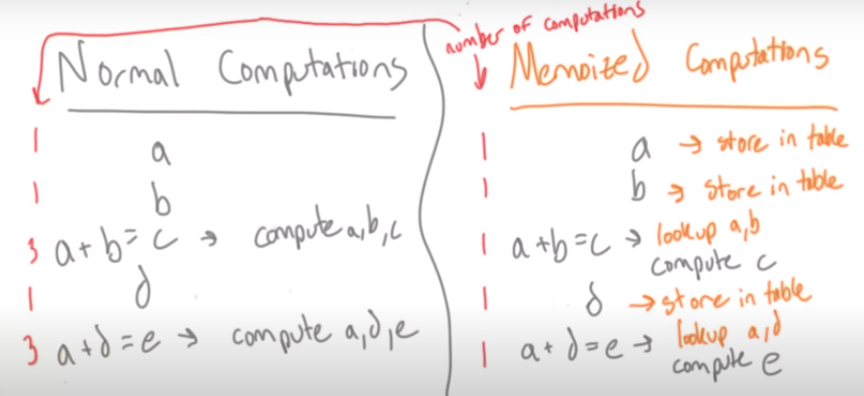 number of computations
Normal Computations
1 a
1 b
3 a + b = c → compute a, b, c
1 d
3 a + d = e → compute a, d, e
Memoized Computations
1 a → store in table
1 b → store in table
1 a + b = c → lookup a, b
compute c
1 d → store in table
1 a + d = e → lookup a, d
compute e